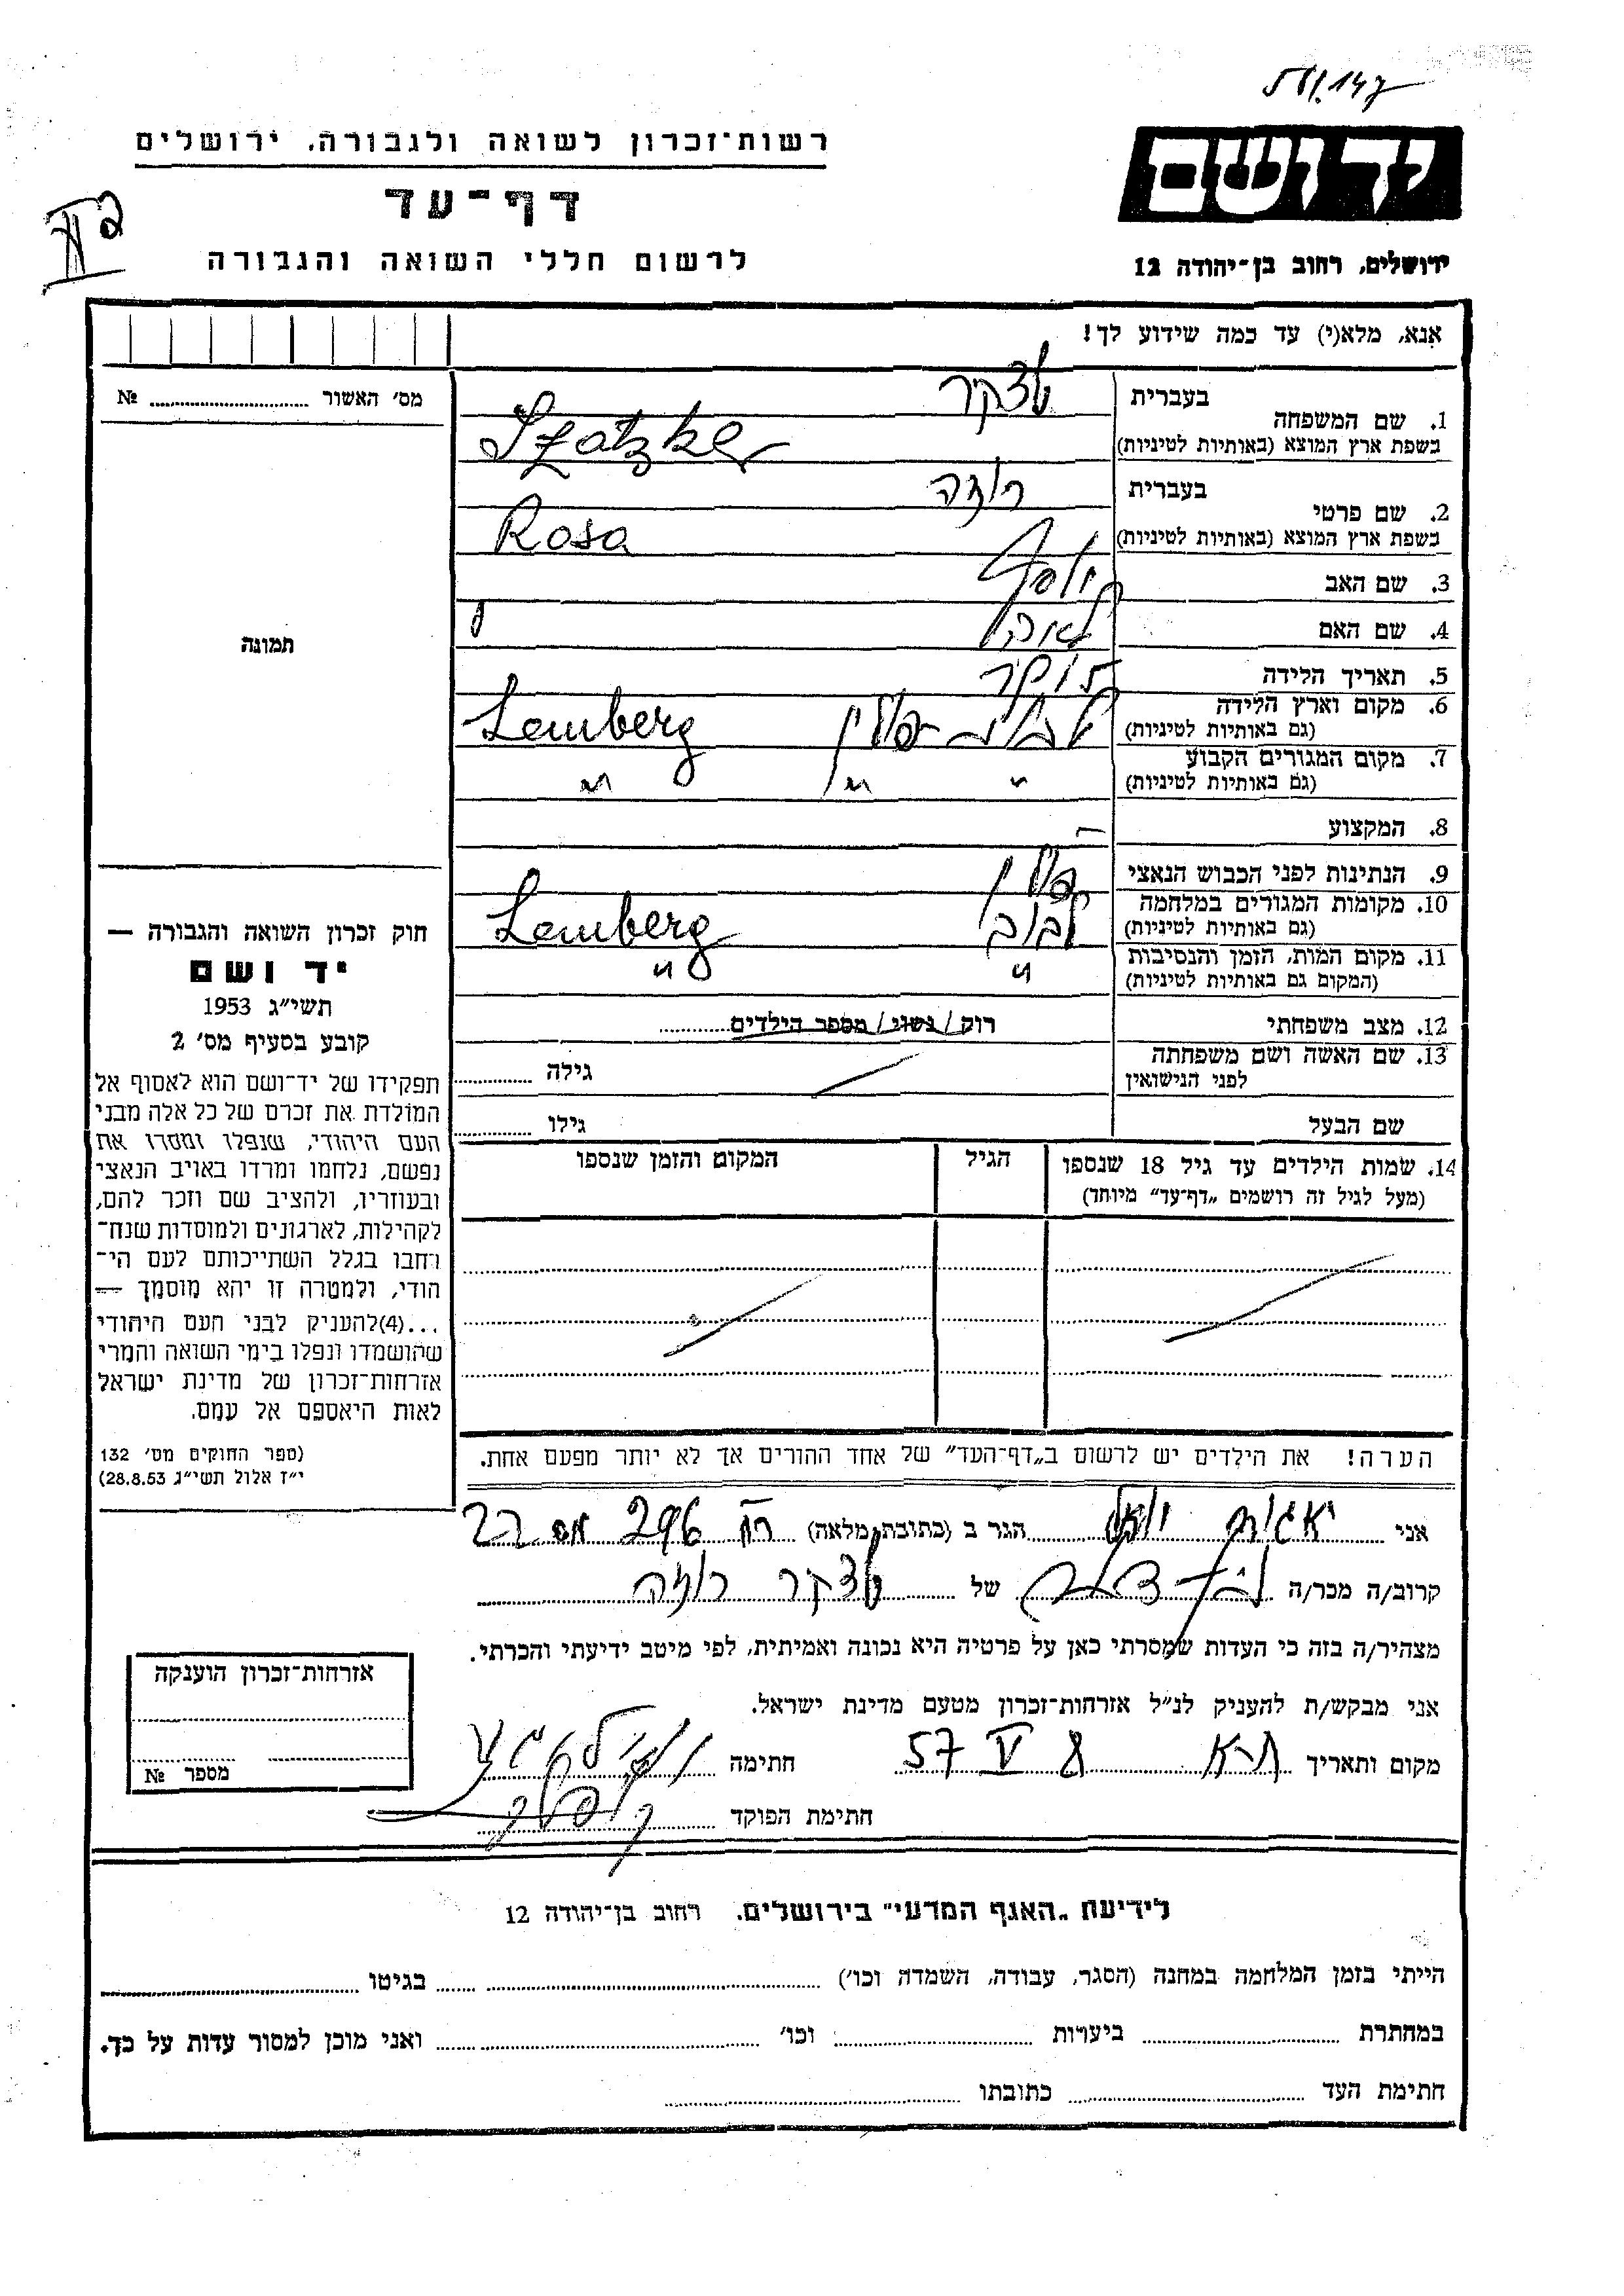 רשות־זכרון לשואה ולגבורה, ירושלים
דף־עד
לרשום חללי השואה והגבורה
יד ושם
ירושלים, רחוב בן־יהודה 12
אנא, מלא(י) עד כמה שידוע לך!
מס׳ האשור № ........
תמונה
חוק זכרון השואה והגבורה —
יד ושם
תשי״ג 1953
קובע בסעיף מס׳ 2
תפקידו של יד־ושם הוא לאסוף אל
המולדת את זכרם של כל אלה מבני
העם היהודי, שנפלו ומסרו את
נפשם, נלחמו ומרדו באויב הנאצי
ובעוזריו, ולהציב שם וזכר להם,
לקהילות, לארגונים ולמוסדות שנח־
רחבו בגלל השתייכותם לעם הי־
הודי, ולמטרה זו יהא מוסמך —
...(4)להעניק לבני העם היהודי
שהושמדו ונפלו בימי השואה והמרי
אזרחות־זכרון של מדינת ישראל
לאות היאספם אל עמם.
(ספר החוקים מס׳ 132
י״ז אלול תשי״ג 28.8.53)
1. שם המשפחה
בעברית
בשפת ארץ המוצא (באותיות לטיניות) Szatzker
2. שם פרטי
בעברית רוזה
בשפת ארץ המוצא (באותיות לטיניות) Rosa
3. שם האב יוסף
4. שם האם לאה
5. תאריך הלידה
6. מקום וארץ הלידה
(גם באותיות לטיניות) לבוב פולין Lemberg
7. מקום המגורים הקבוע
(גם באותיות לטיניות) " " "
8. המקצוע —
9. הנתינות לפני הכבוש הנאצי פולין
10. מקומות המגורים במלחמה
(גם באותיות לטיניות) לבוב Lemberg
11. מקום המות, הזמן והנסיבות
(המקום גם באותיות לטיניות) " "
12. מצב משפחתי רוק / נשוי / מספר הילדים........
13. שם האשה ושם משפחתה
לפני הנישואין גילה ........
שם הבעל גילו ........
14. שמות הילדים עד גיל 18 שנספו
(מעל לגיל זה רושמים „דף־עד״ מיוחד)
הגיל
המקום והזמן שנספו
הערה! את הילדים יש לרשום ב„דף־העד״ של אחד ההורים אך לא יותר מפעם אחת.
אני הגר ב (כתובת מלאה) 296
קרוב/ה מכר/ה של רוזה
מצהיר/ה בזה כי העדות שמסרתי כאן על פרטיה היא נכונה ואמיתית, לפי מיטב ידיעתי והכרתי.
אני מבקש/ת להעניק לנ״ל אזרחות־זכרון מטעם מדינת ישראל.
מקום ותאריך 8 V 57 חתימה
חתימת הפוקד
אזרחות־זכרון הוענקה
מספר №
לידיעת „האגף המדעי״ בירושלים, רחוב בן־יהודה 12
הייתי בזמן המלחמה במחנה (הסגר, עבודה, השמדה וכו׳) ........ בגיטו ........
במחתרת ........ ביערות ........ וכו׳ ........ ואני מוכן למסור עדות על כך.
חתימת העד ........ כתובתו ........